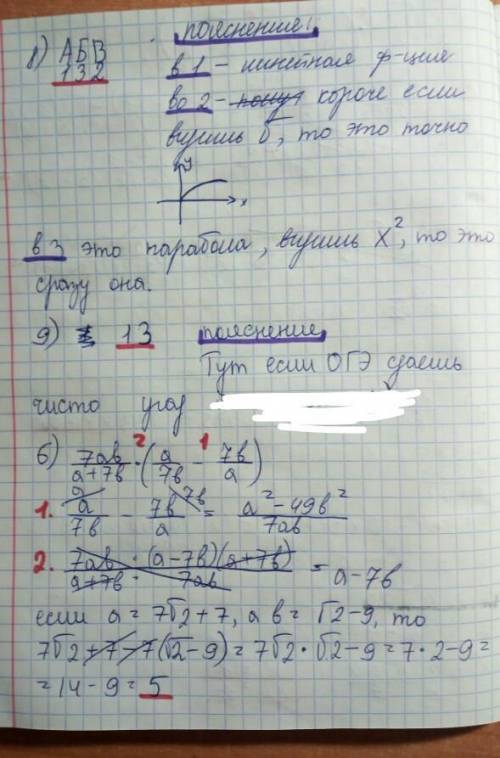 пояснение!
8) А Б В
1 3 2
в 1 – линейная ф-ция
во 2 – короче если
видишь √, то это точно
y
x
в 3 это парабола, видишь x², то это
сразу она.
9) 13 пояснение
Тут если ОГЭ сдаешь
чисто угад
2 1
6) 7ab/(a+7b) · (a/7b − 7b/a)
1. a/7b − 7b/a = (a² − 49b²)/7ab
2. 7ab · (a−7b)(a+7b)/(a+7b · 7ab) = a−7b
если a = 7√2+7, а b = √2−9, то
7√2+7−7(√2−9) = 7√2 · √2−9 = 7·2−9 =
= 14−9 = 5